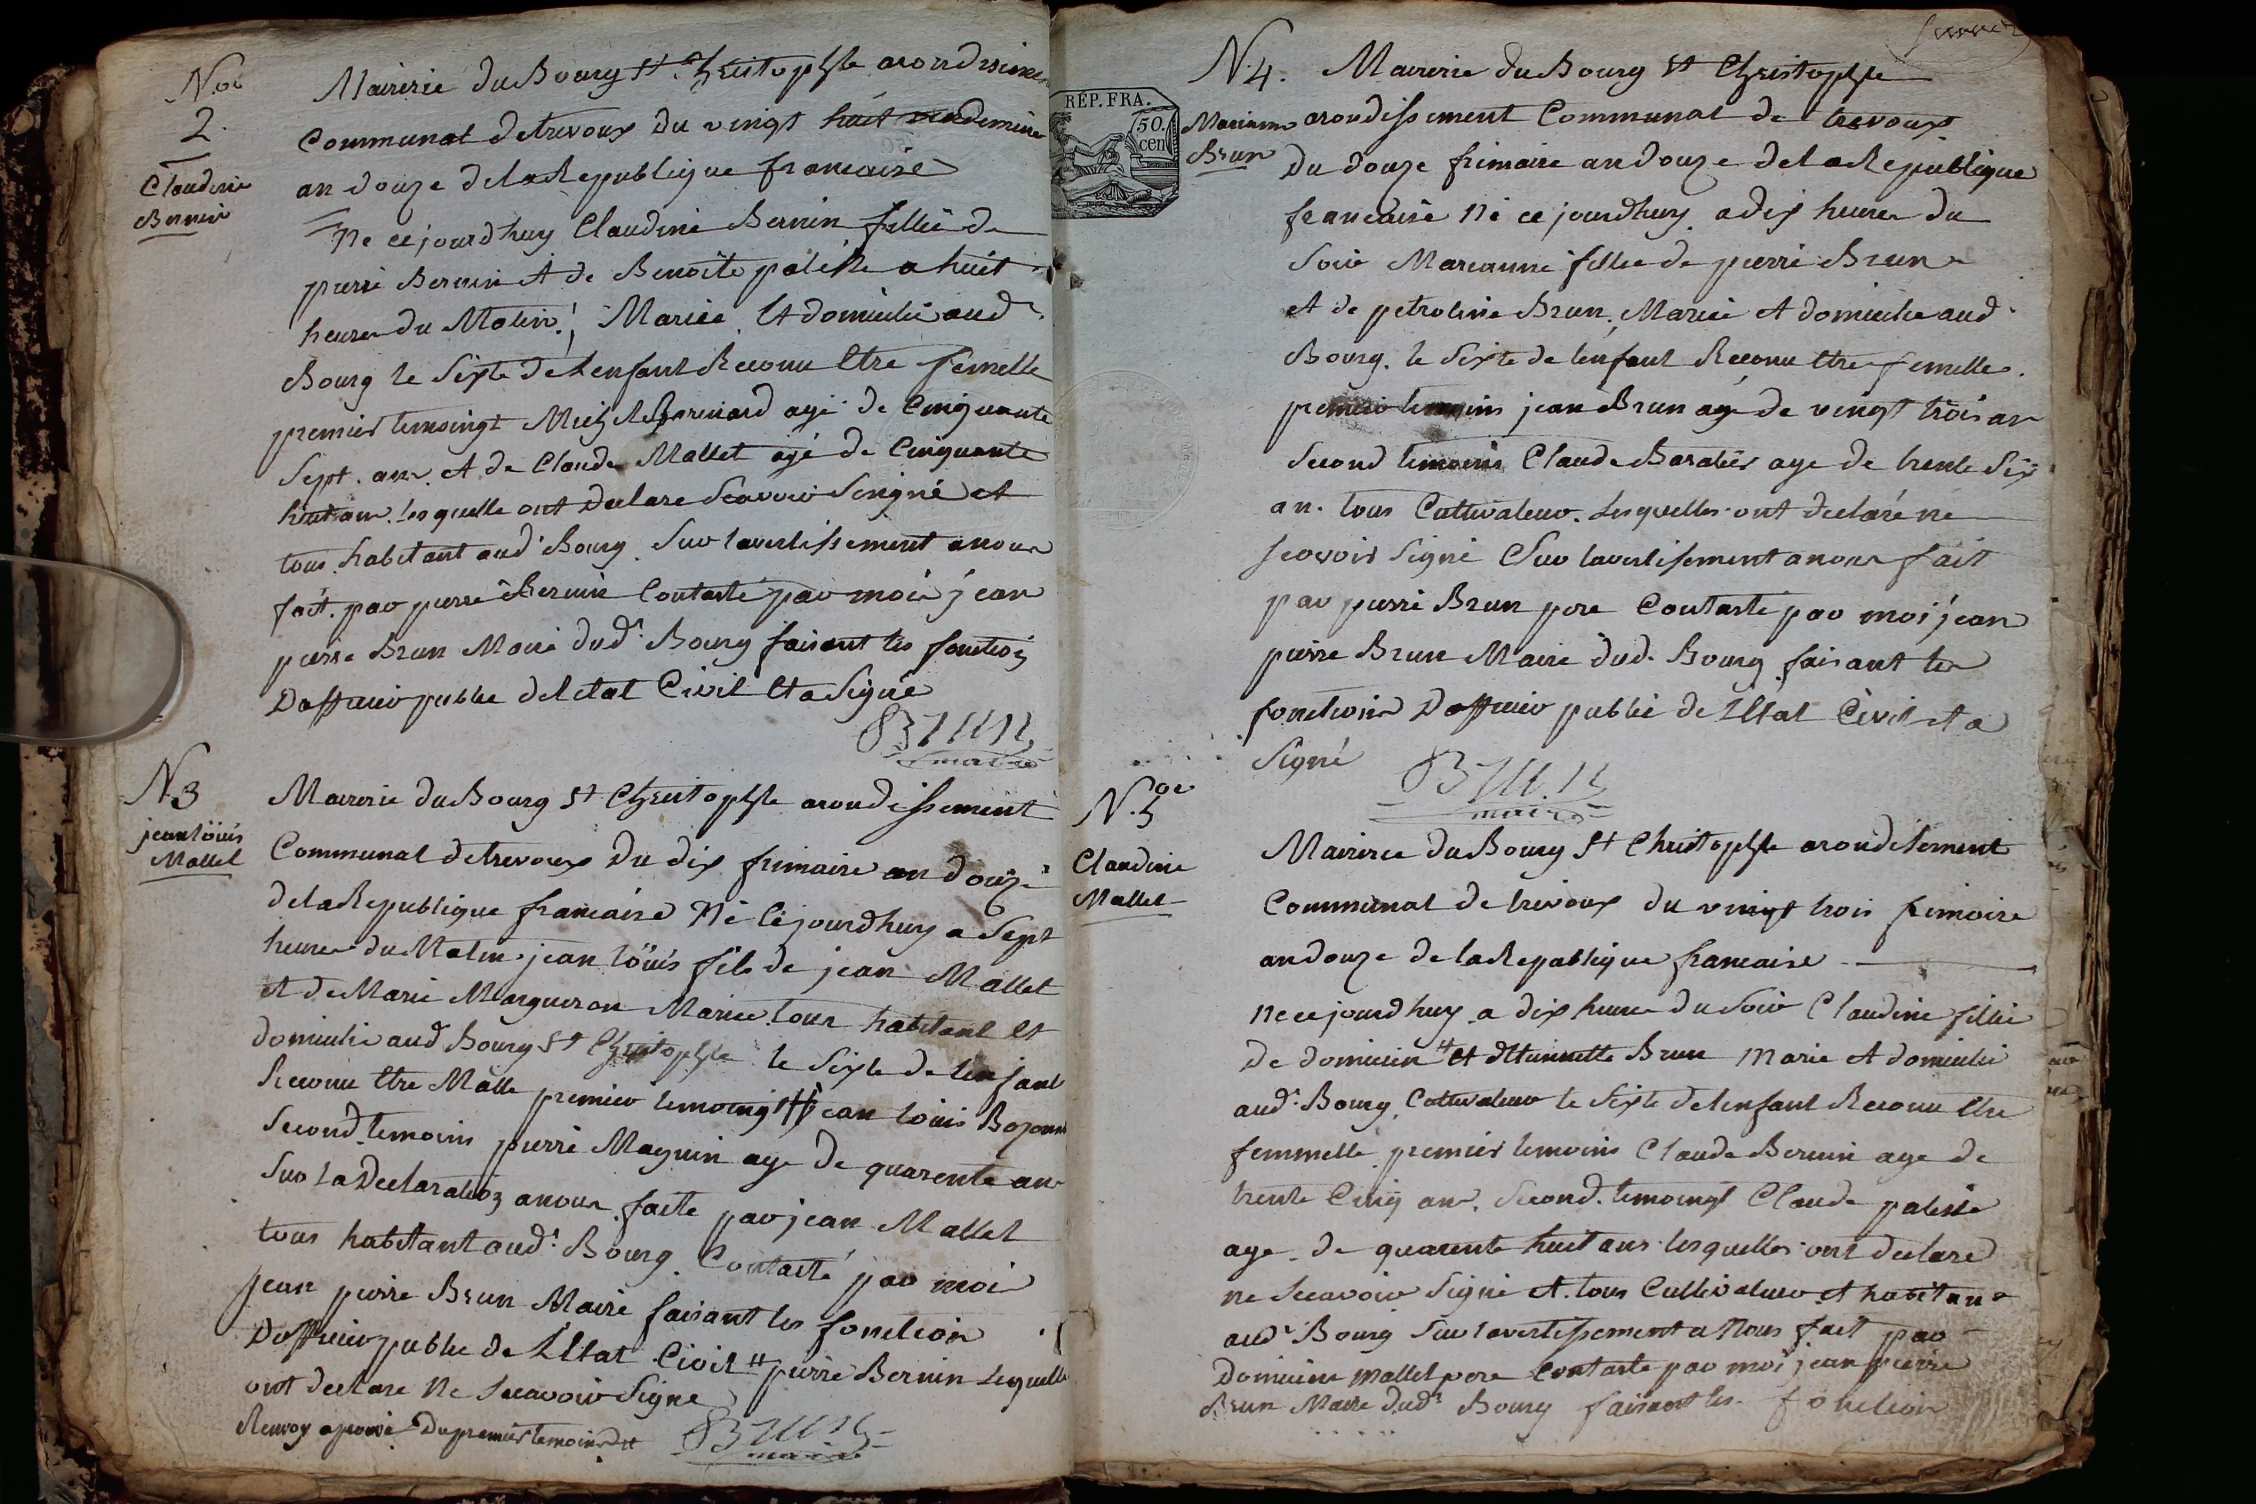 N.oe
2.
Claudine
Bernin
Mairerie du Bourg St Christophle arondissme
Communal de trevoux du vingt huit vendemiere
an douze de la Republique francaise
Ne ce jourdhuy Claudine Bernin fillie de
pierre Bernin et de Benoite palisse a huit
heures du Matin. Mariée et domicilie aud.
Bourg le sexte de lenfant Reconu Etre femelle
premier temoingt Michel Bernard agé de Cinquante
Sept. ans et de Claude Mallet agé de Cinquante
huit ans. les quelle ont declare Scavoir Singné et
tous habitant aud. Bourg. Sur lavertissement a nous
fait. par pierre Bernin Contasté par moi jean
pierre Brun Maire dudt. Bourg faisant les fonction
Dofficier public de letat Civil Et a Signé
Brun
maire
N.3
jean loüis
Mallet
Mairerie du Bourg St Christophle arondissement
Communal de trevoux Du dix frimaire an douze
de la Republique francaise Né Ce jourdhuy a Sept
heures du Matin. jean loüis fils de jean Mallet
et de Marie Margueron Mariee tous habitant et
domicilie aud Bourg St Christophle le Sexte de lenfant
Reconu Etre Malle premier temoingt # jean loüis Bozon
Second temoins pierre Maguin age de quarente ans
Sur la Declaration a nous faite par jean Mallet
tous habitant aud. Bourg. Contasté par moi
jean pierre Brun Maire faisant les fonction
Dofficier public de LEtat Civil # pierre Bernin Lesquelle
ont declare Ne Scavoir Signe
Renvoy aprouvé Du premier temoins #
Brun
maire
RÉP. FRA.
50.
cen
N.4.
Marianne
Brun
Mairerie du Bourg St Christophle
arondissement Communal de trevoux
Du douze frimaire an douze de la Republique
francaise Né ce jourdhuy a dix heures du
Soir Marianne fillie de pierre Brun
et de petroline Brun. Mariée et domicilie aud.
Bourg. le Sexte de lenfant Reconu Etre femelle.
premier temoins jean Brun agé de vingt trois an
Second temoins Claude Baratier age de trente Six
an. tous Cultivateur. Lesquelles ont declaré ne
scavoir Signé Sur lavertisement a nous fait
par pierre Brun pere Contasté par moi jean
pierre Brun Maire dud. Bourg. faisant les
fonctions Dofficier public de LEtat Civil et a
Signé
Brun
maire
N.oe 5
Claudine
Mallet
Mairerie du Bourg St Christophle arondisement
Communal de trevoux du vingt trois frimaire
an douze de la Republique francaise
Ne ce jourdhuy a dix heures du Soir Claudine fillie
De domicien # et dEtiennette Brun Marie et domicilie
aud. Bourg. Cultivateur le Sexte de lenfant Reconu Etre
femmelle premier temoins Claude Bernin age de
trente Cinq ans. Second. temoingt Claude palisse
age de quarente huit ans. lesquelles ont declare
ne Scavoir Signé et. tous Cultivateur et habitans
aud. Bourg Sur lavertissement a Nous fait par
Domicien Mallet pere Contasté par moi jean pierre
Brun Maire dudt. Bourg faisant les fonction